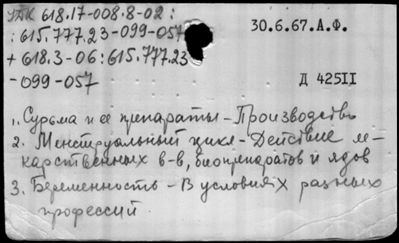 УДК 618.17-008.8-02:
:615.777.23-099-057
+618.3-06:615.777.23
-099-057
30.6.67.А.Ф.
Д 425II
1. Сурьма и ее препараты - Производство
2. Менструальный цикл - Действие ле-
карственных в-в, биопрепаратов и ядов
3. Беременность - В условиях разных
профессий